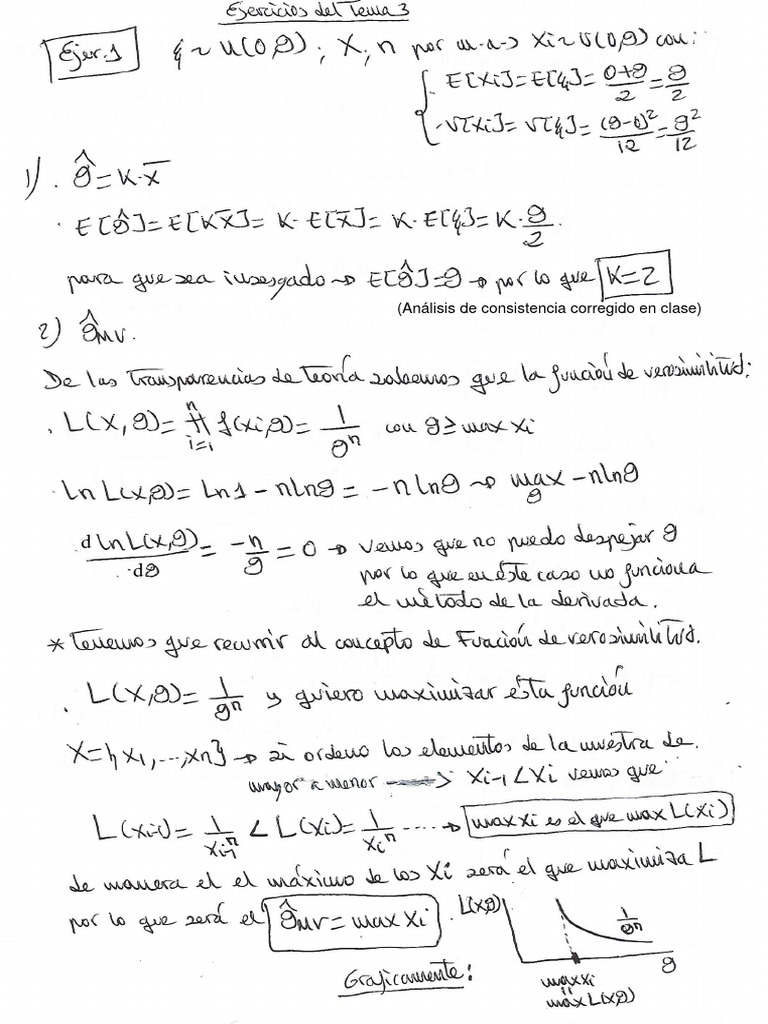 Ejercicios del Tema 3
Ejer.1 ξ ~ U(0,θ); X, n por m.a.s Xi ~ U(0,θ) con:
E[Xi] = E[ξ] = (0+θ)/2 = θ/2
V[Xi] = V[ξ] = (θ-0)²/12 = θ²/12
1) · θ̂ = K·x̄
· E[θ̂] = E[Kx̄] = K·E[x̄] = K·E[ξ] = K·θ/2.
para que sea insesgado → E[θ̂]=θ → por lo que K=2
(Análisis de consistencia corregido en clase)
2) θ̂MV.
De las Transparencias de Teoría sabemos que la función de verosimilitud:
· L(X,θ) = ∏ⁿᵢ₌₁ f(xi,θ) = 1/θⁿ con θ ≥ max xi
· ln L(x,θ) = ln 1 - n ln θ = -n ln θ → max_θ -n ln θ
· d ln L(x,θ)/dθ = -n/θ = 0 → vemos que no puedo despejar θ
por lo que en éste caso no funciona
el método de la derivada.
* Tenemos que recurrir al concepto de Función de verosimilitud.
· L(X,θ) = 1/θⁿ y quiero maximizar ésta función
X = {x1, ..., xn} → si ordeno los elementos de la muestra de
mayor a menor → Xi-1 < Xi vemos que
L(xi-1) = 1/xi-1ⁿ < L(xi) = 1/xiⁿ ····→ max xi es el que max L(xi)
de manera el el máximo de los Xi será el que maximiza L
por lo que será el θ̂MV = max Xi · L(x,θ) 1/θⁿ
θ
Graficamente: max xi
=
máx L(x,θ)